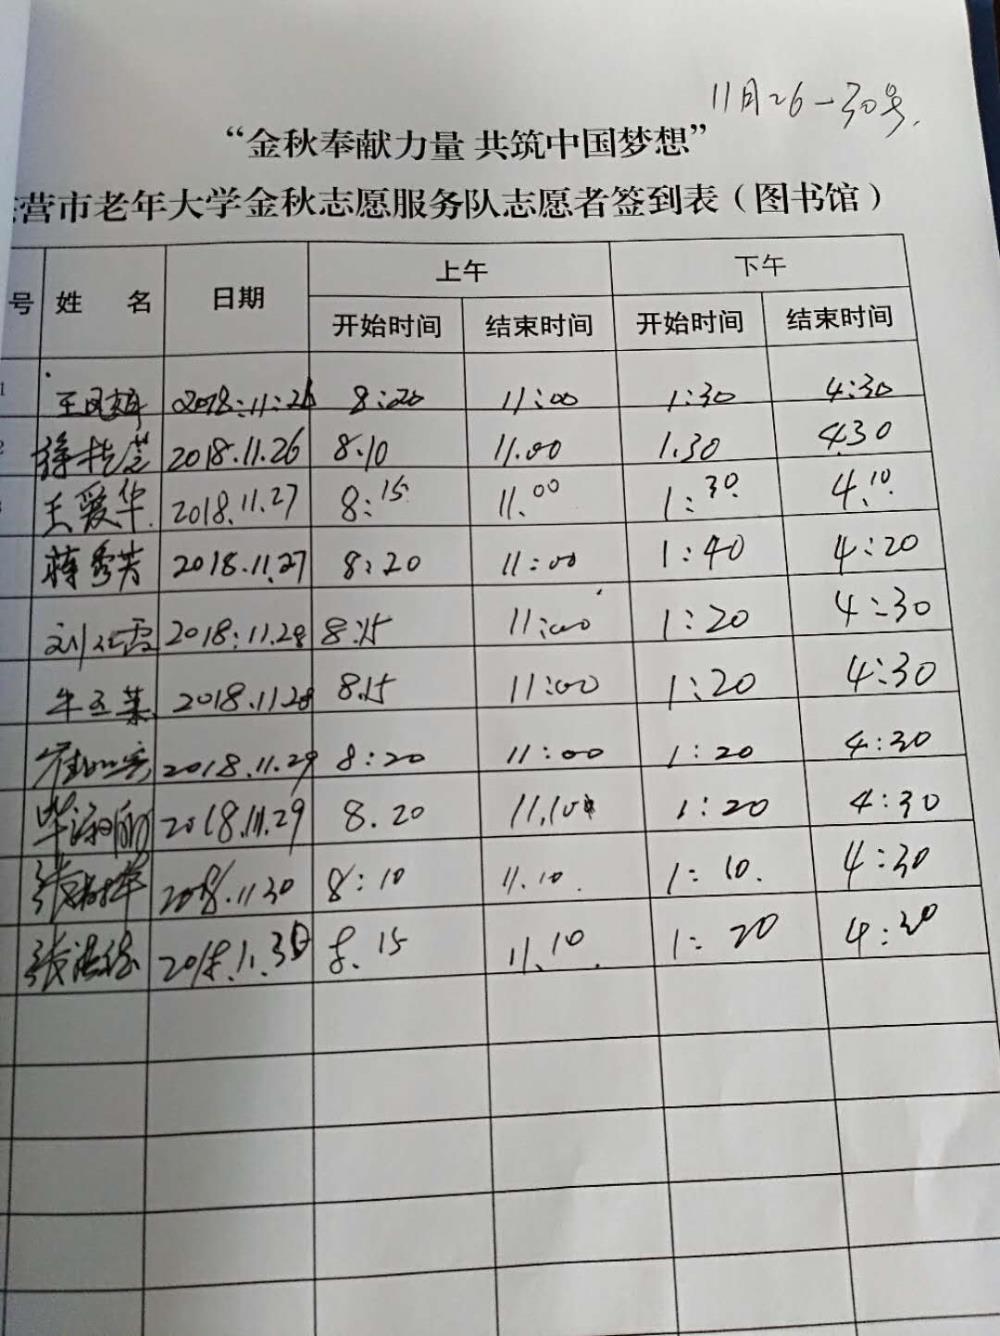 11月26-30号.
“金秋奉献力量 共筑中国梦想”
营市老年大学金秋志愿服务队志愿者签到表（图书馆）
号 姓 名 日期 上午 下午
开始时间 结束时间 开始时间 结束时间
1 王凤 2018:11:26 8:20 11:00 1:30 4:30
2 徐桂芝 2018.11.26 8.10 11.00 1.30 4.30
王爱华. 2018.11.27 8:15 11.00 1:30. 4.10.
蒋秀芳 2018.11.27 8:20 11:00 1:40 4:20
刘仁霞 2018:11.28 8:15 11:00 1:20 4:30
牛玉英 2018.11.28 8.15 11:00 1:20 4:30
2018.11.29 8:20 11:00 1:20 4:30
毕淑丽 2018.11.29 8.20 11.10 1:20 4:30
张树华 2018.11 30 8:10 11.10. 1:10. 4:30
张洪 2018.11.30 8.15 11.10. 1:20 4:30